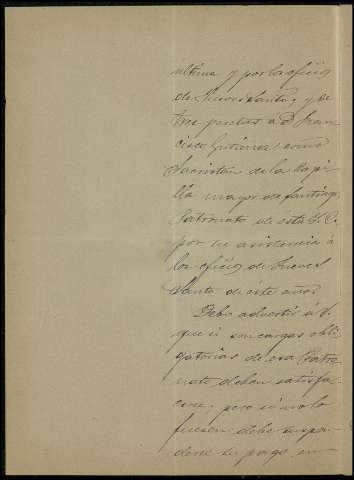 ultima y por los oficios
de Jueves Santo, y de
tres pesetas a D. Fran
cisco Gutierrez como
Sacristan de la Capi
lla mayor de Santiago
Patronato de ésta
por su asistencia á
los oficios de Jueves
Santo de éste año.
Debo advertir á V.
que si son cargas obli
gatorias de ese Patro
nato deben satisfa
cerse, pero si no lo
fuesen debe suspen
derse su pago, en